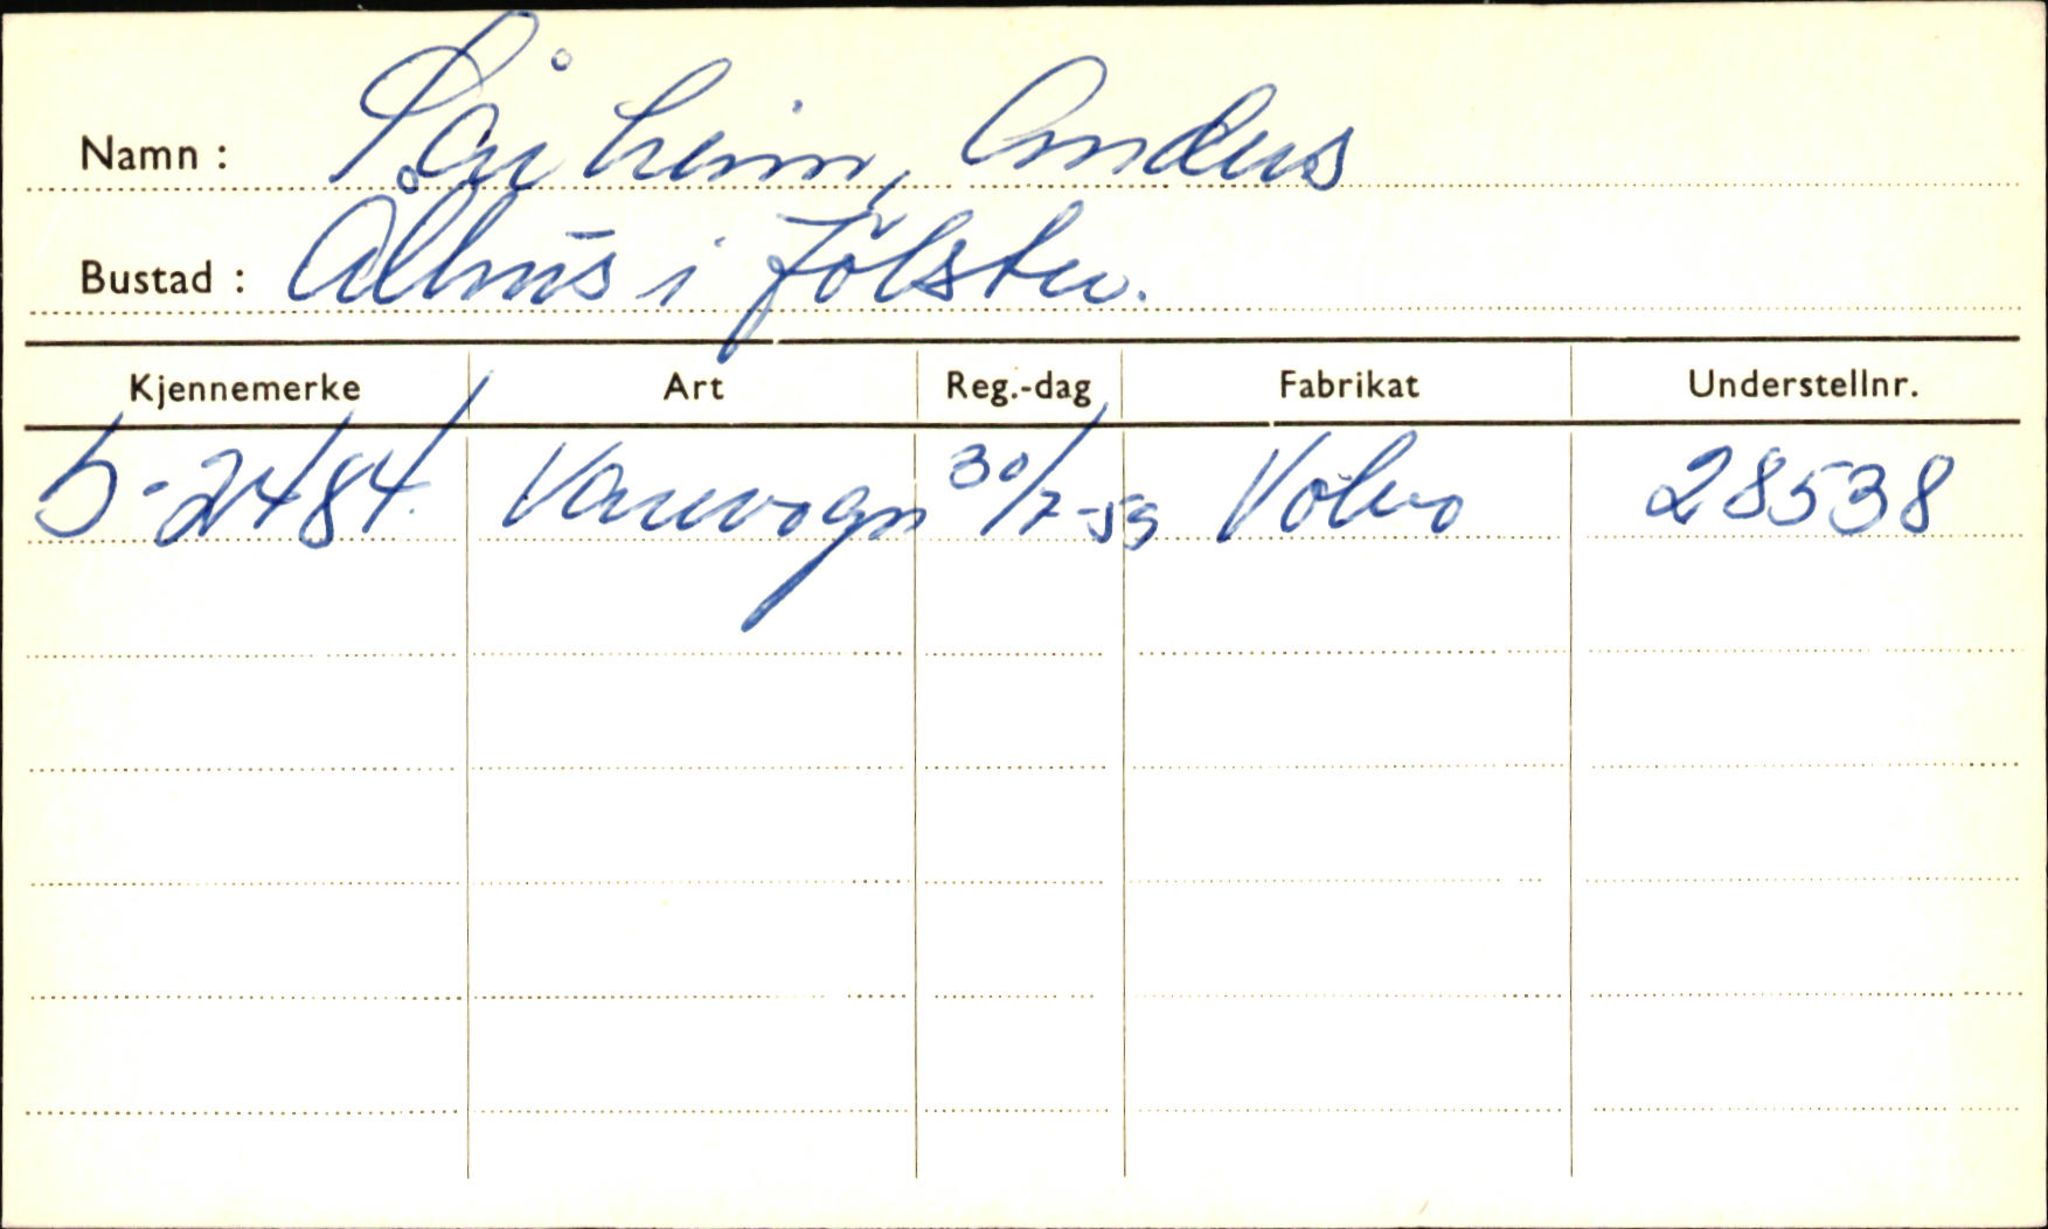 Namn : Sårheim, Anders
Bustad : Ålhus i Jölster.
Kjennemerke Art Reg.-dag Fabrikat Understellnr.
S-2484. Varevogn 30/7-59 Volvo 28538